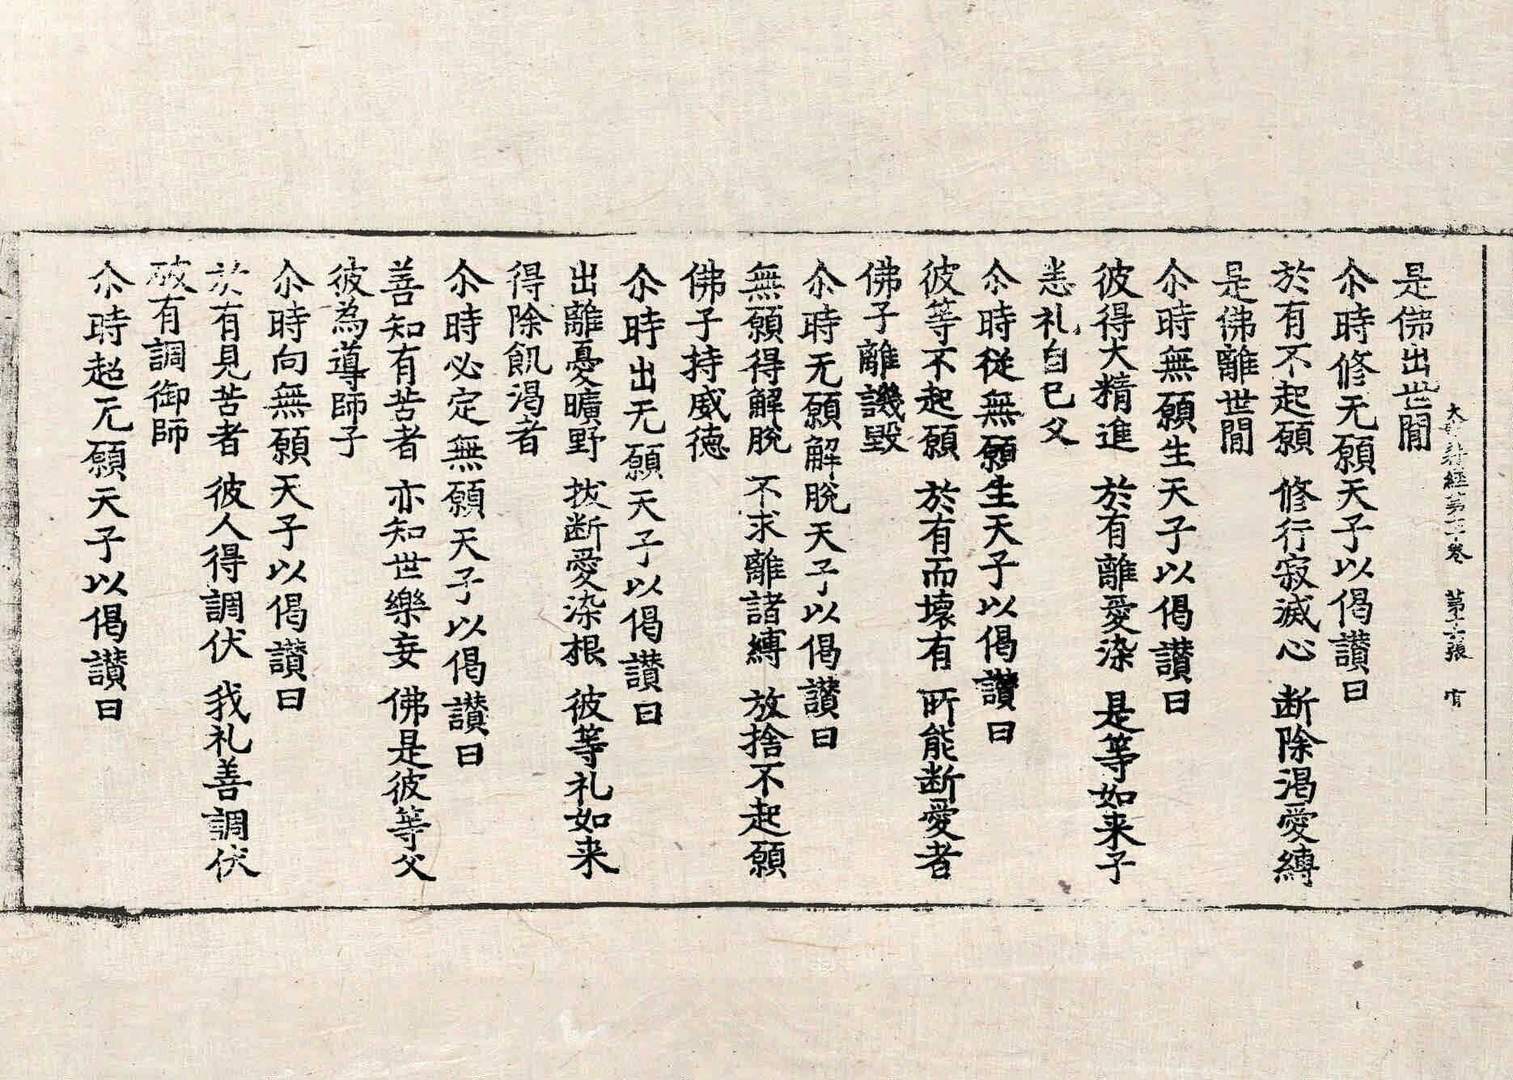 經第 卷 第十六張
是佛出世間
尒時修无願天子以偈讃曰
於有不起願 修行寂滅心 断除渴愛縛
是佛離世間
尒時無願生天子以偈讃曰
彼得大精進 於有離愛染 是等如来子
恙礼自已父
尒時從無願生天子以偈讃曰
彼等不起願 於有而壊有 所能断愛者
佛子離譏毀
尒時无願解脫天子以偈讃曰
無願得解脫 不求離諸縛 放捨不起願
佛子持威德
尒時出无願天子以偈讃曰
出離憂曠野 拔断愛染根 彼等礼如来
得除飢渴者
尒時必定無願天子以偈讃曰
善知有苦者 亦知世樂妄 佛是彼等父
彼為導師子
尒時向無願天子以偈讃曰
於有見苦者 彼人得調伏 我礼善調伏
破有調御師
尒時超无願天子以偈讃曰